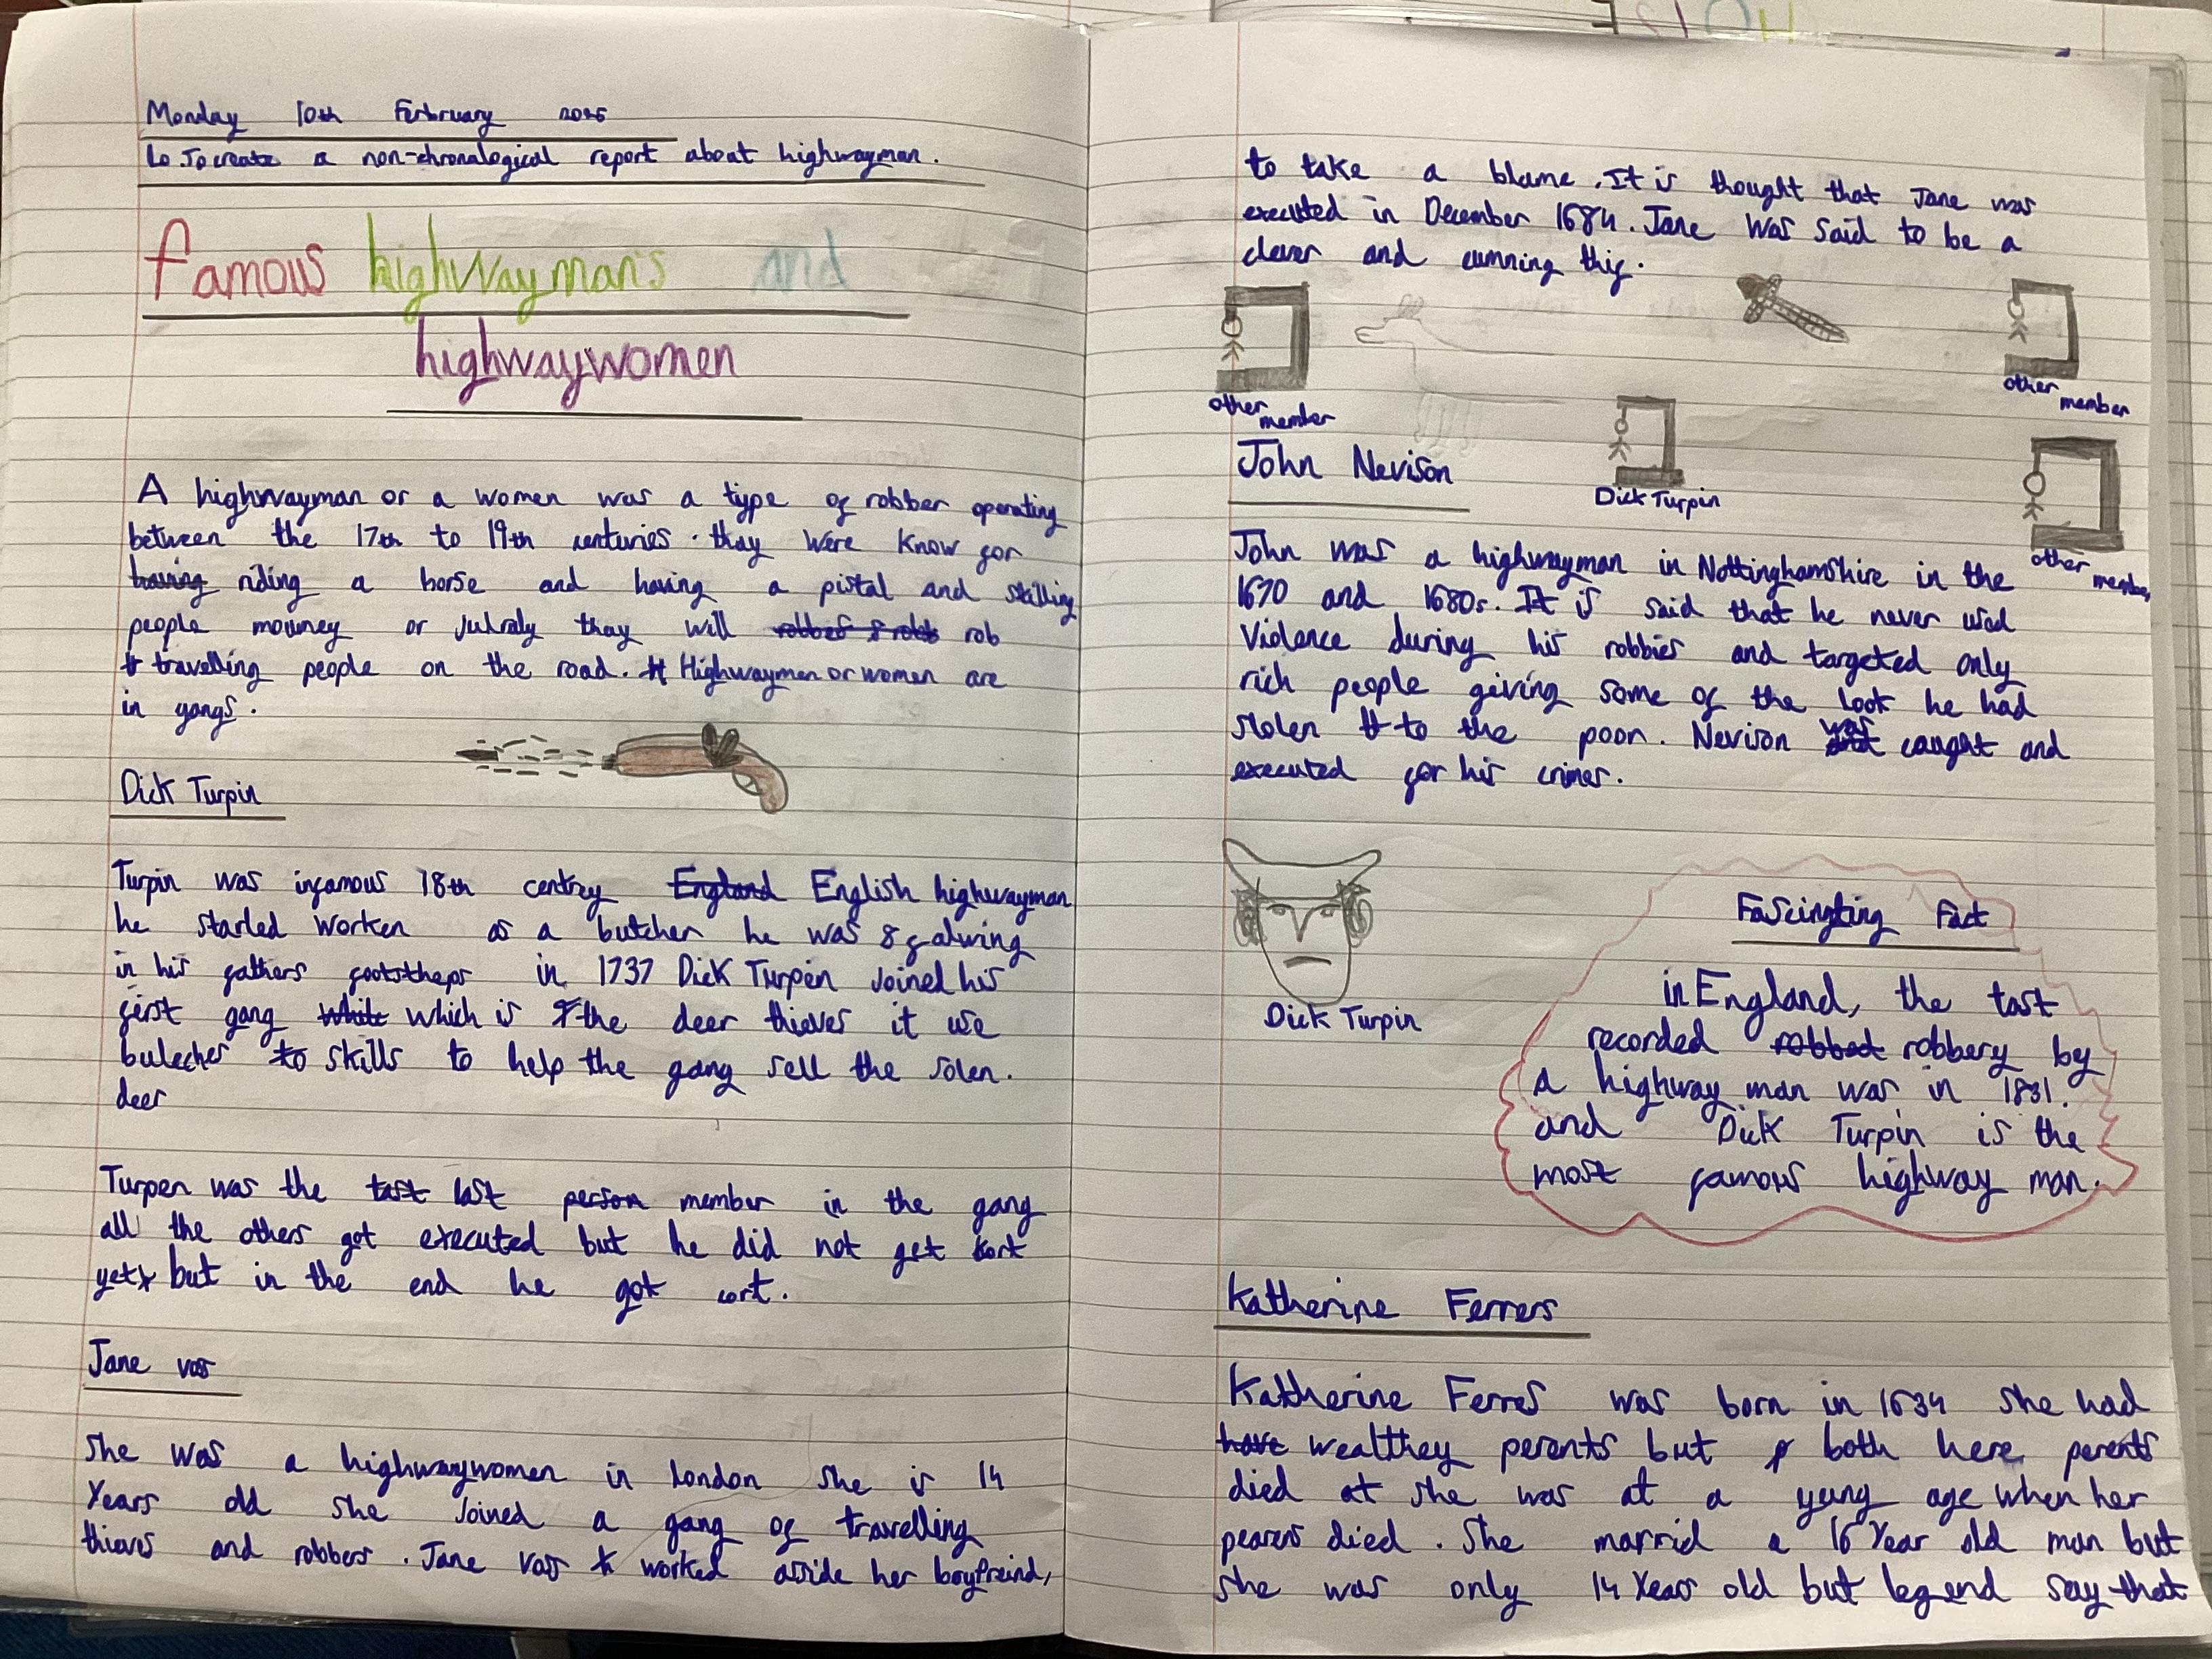 Monday 10th Ferbruary 2025
Lo. To create a non-chronalogical report about highwayman.
famous highwayman's and
highwaywomen
A highwayman or a women was a type of robber operating
between the 17th to 19th centuries. thay were know for
having riding a horse and having a pistal and stilling
people mouney or julraly thay will rob
travelling people on the road. Highwaymen or women are
in gangs.
Dick Turpin
Turpin was infamous 18th centrey England English highwayman
he started worken as a butcher he was falwing
in his fathers footstheps in 1737 Dick Turpen Joined his
first gang while which is the deer thieves it use
bulecher to skills to help the gang sell the solen.
deer
Turpen was the last person member in the gang
all the others got executed but he did not get cort
yet but in the end he got cort.
Jane vos
She was a highwaywomen in London she is 14
Years old she Joined a gang of travelling
thievs and robbers. Jane vos worked aside her boyfreind,
to take a blame. It is thought that Jane was
executed in December 1684. Jane was said to be a
clever and cunning thif.
other member
other member
Dick Turpin
other member
John Nevison
John was a highwayman in Nottinghamshire in the
1670 and 1680s. It is said that he never used
Violence during his robbies and targeted only
rich people giving some of the loot he had
stolen to the poor. Nevison was caught and
executed for his crimes.
Dick Turpin
Fascingting Fact
in England, the tast
recorded robbed robbery by
a highway man was in 1831.
and Dick Turpin is the
most famous highway man.
Katherine Ferrers
Katherine Ferres was born in 1634 she had
have wealthey perents but both here perents
died at she was at a yung age when her
pearens died. She marrid a 16 Year old man but
she was only 14 Years old but legend say that